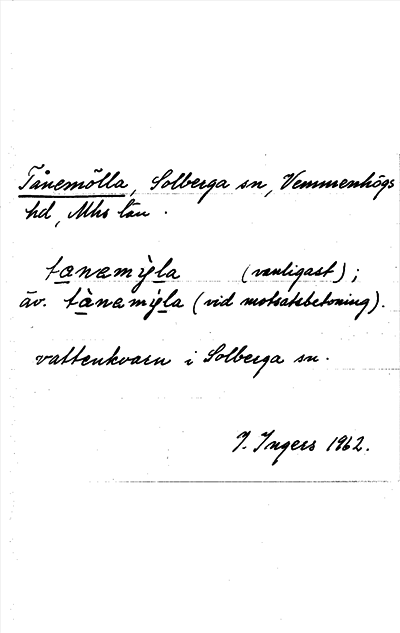 Tånemölla, Solberga sn, Vemmenhögs
hd, Mhs län.
tanamỳla (vanligast);
äv. tànamỳla (vid motsatsbetoning).
vattenkvarn i Solberga sn.
I. Ingers 1962.